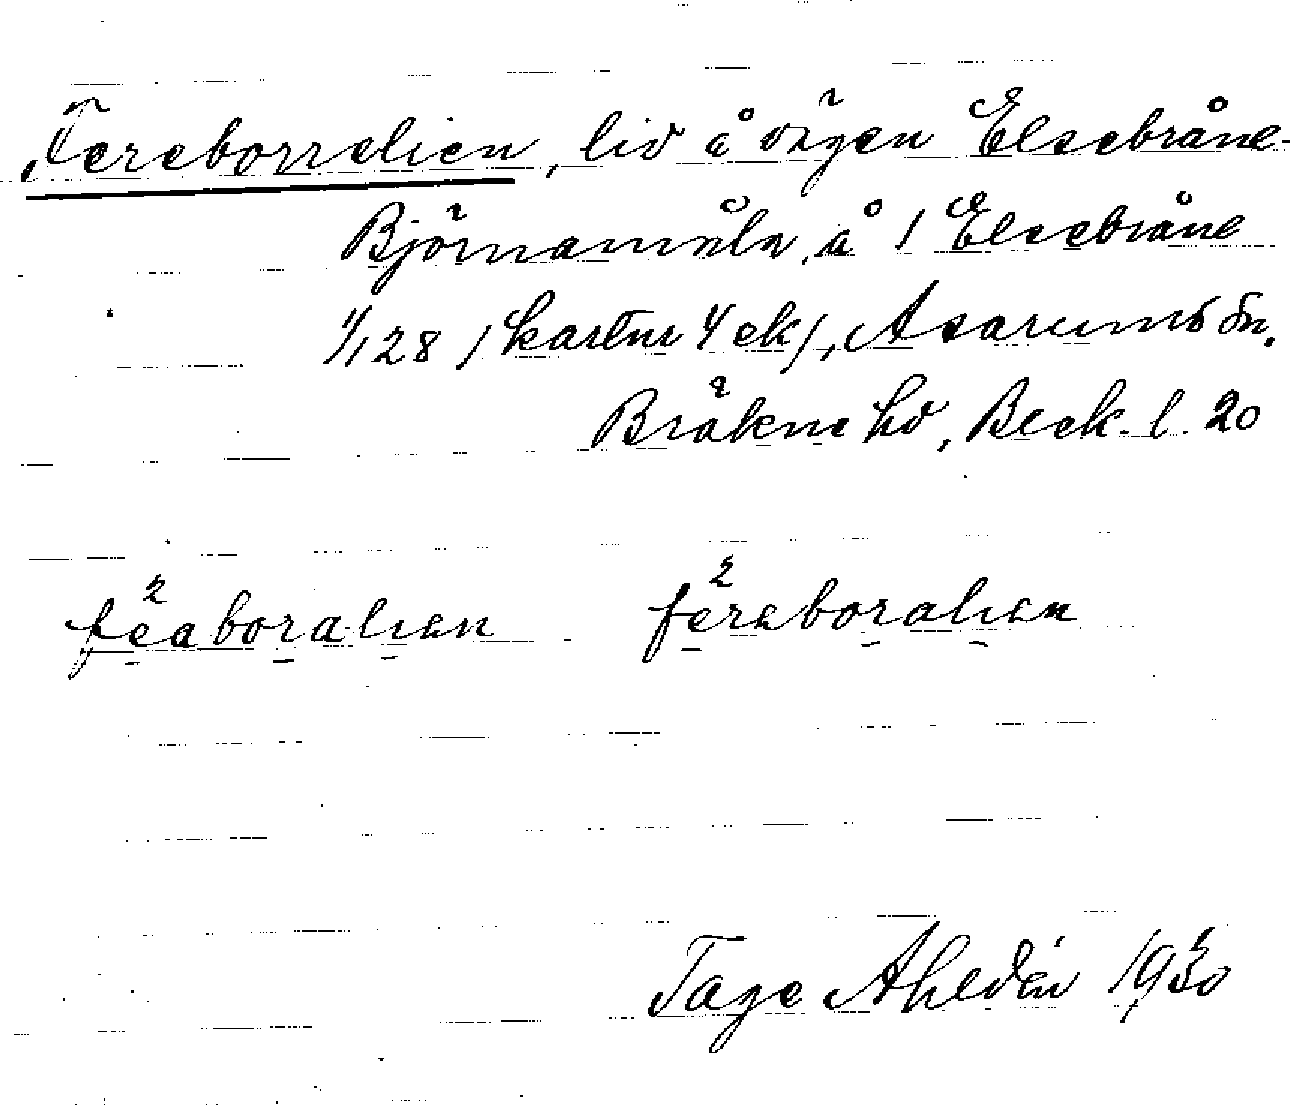 Fereborrelien, lid å vägen Elsebråne-
Björnamåla, å 1 Elsebråne
1/128 (kartnr 4 ek), Asarums sn.
Bräkne hd, Blek. l. 20
feaboralien fereboralien
Tage Ahldén 1930